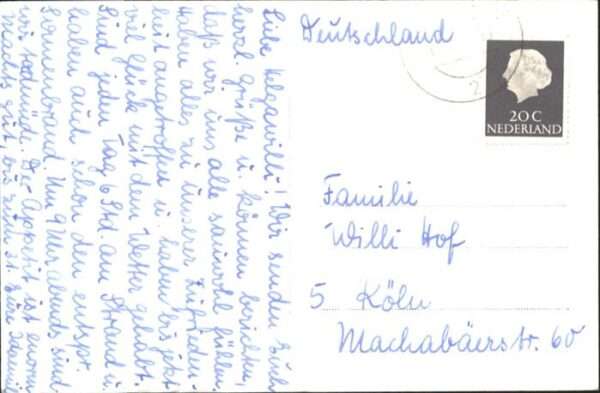 Liebe Helgawilli! Wir senden Euch
herzl. Grüße u. können berichten,
daß wir uns alle sauwohl fühlen.
Haben alles zu unserer Zufrieden-
heit angetroffen u. haben bis jetzt
viel Glück mit dem Wetter gehabt.
Sind jeden Tag 6 Std. am Strand u.
haben auch schon den entspr.
Sonnenbrand. Um 9 Uhr abends sind
wir todmüde. Der Appetit ist enorm
Machts gut, bis zum 31. Eure
Deutschland
20 C
NEDERLAND
Familie
Willi Hof
5 Köln
Machabäerstr. 60